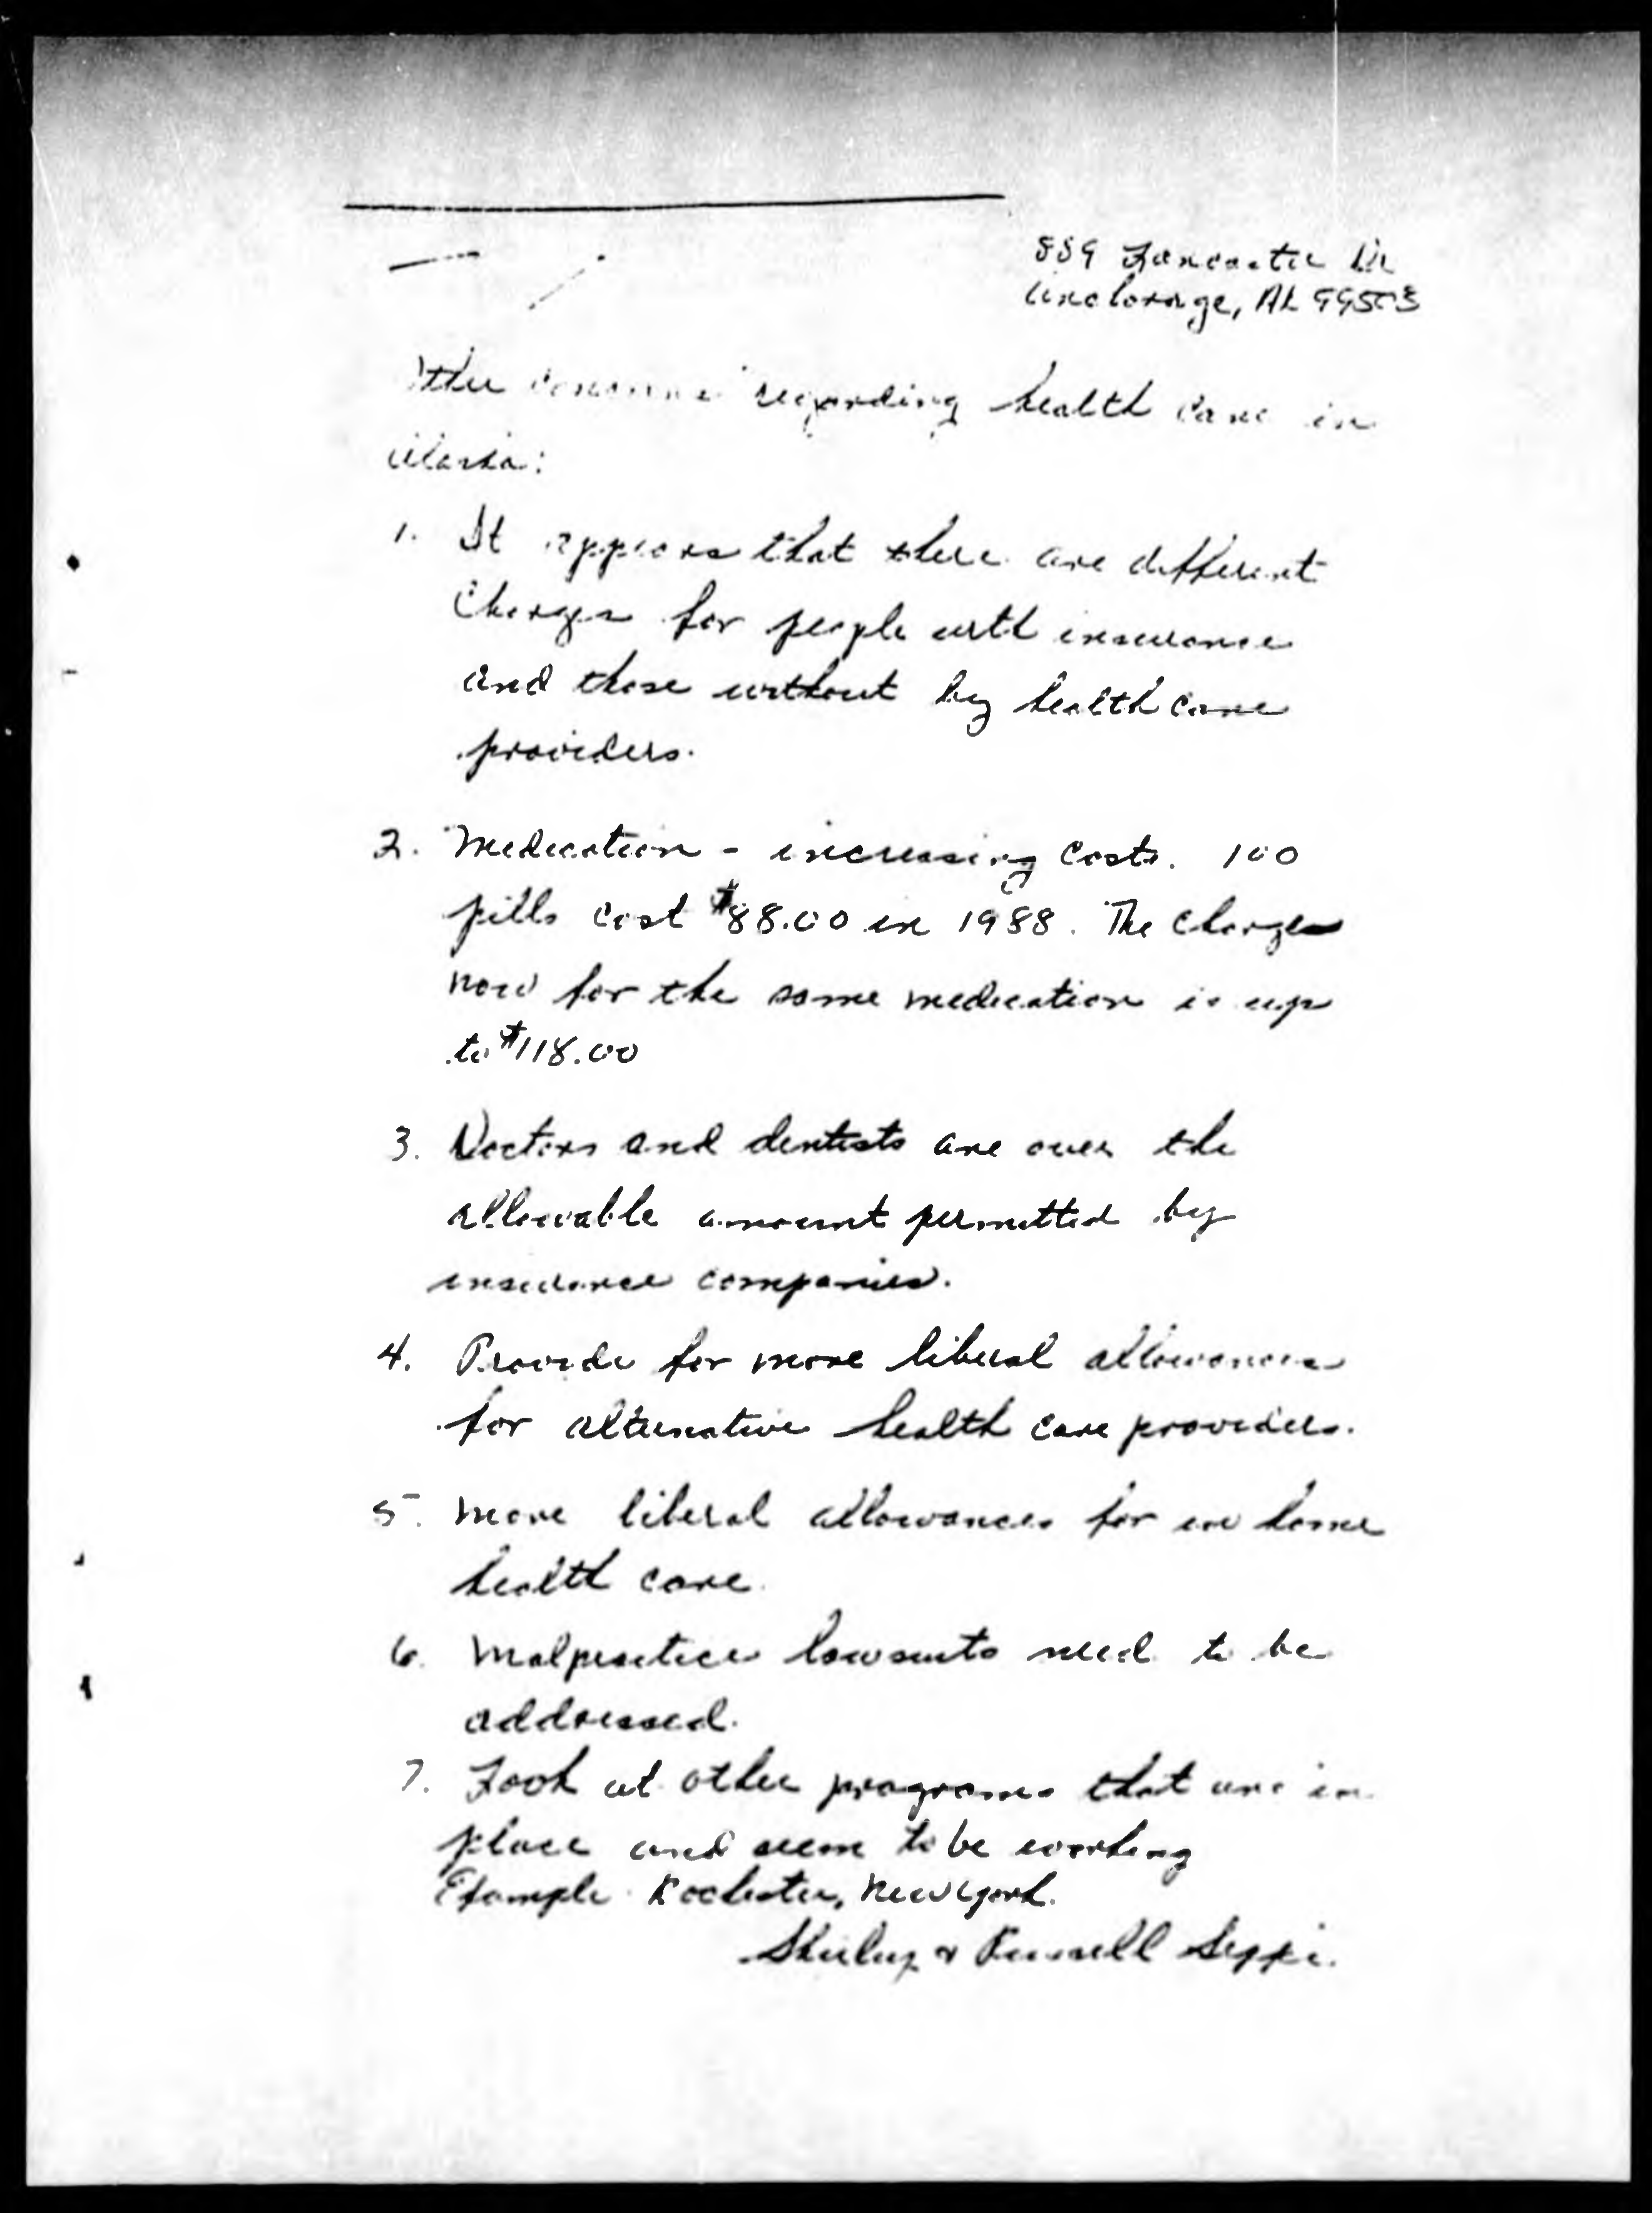 889 Lancaster Dr
Anchorage, AK 99503
regarding health care in
Alaska:
1. It appears that there are different
Charges for people with insurance
and those without by health care
providers.
2. Medication - increasing costs. 100
pills cost $88.00 in 1988. The charges
now for the same medication is up
to $118.00
3. Doctors and dentists are over the
allowable amount permitted by
insurance companies.
4. Provide for more liberal allowances
for alternative health care providers.
5. More liberal allowances for in home
health care.
6. Malpractice lawsuits need to be
addressed.
7. Look at other programs that are in
place and seem to be working
Example Rochester, New York.
Shirley & Russell Seppi.